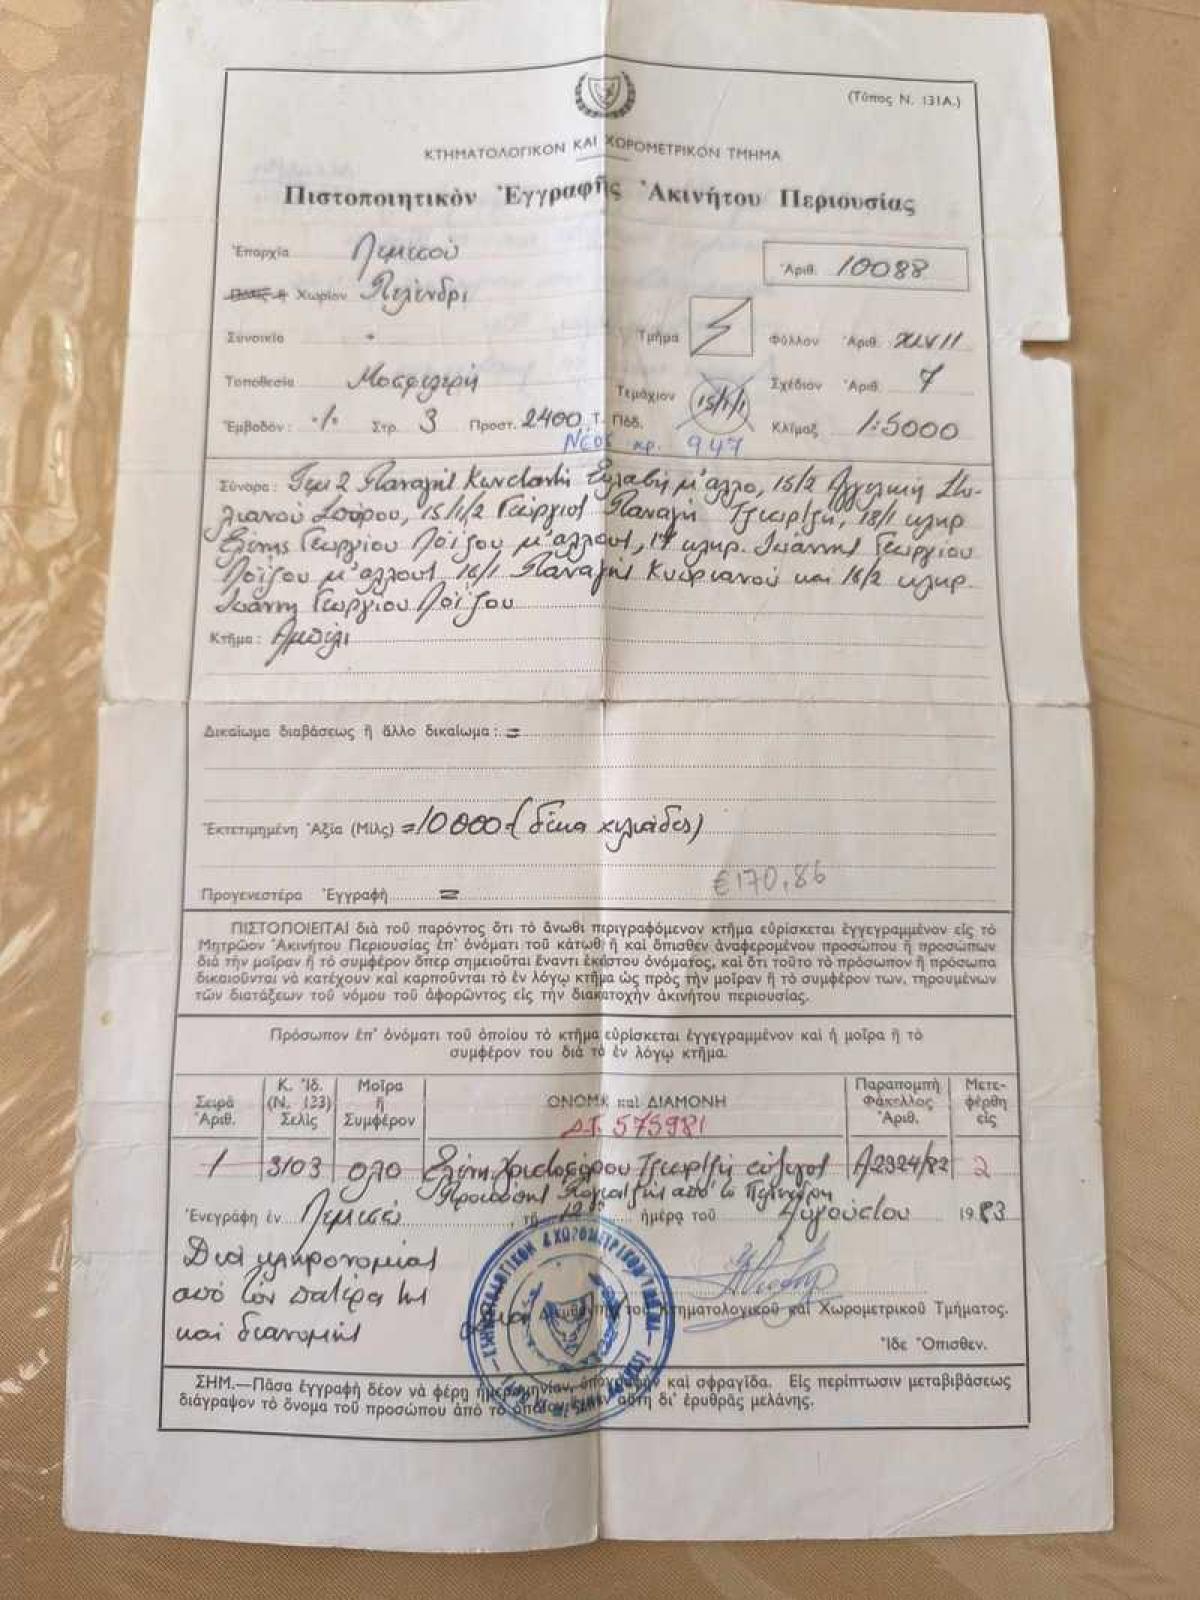 (Τύπος Ν. 131Α.)
ΚΤΗΜΑΤΟΛΟΓΙΚΟΝ ΚΑΙ ΧΩΡΟΜΕΤΡΙΚΟΝ ΤΜΗΜΑ
Πιστοποιητικὸν Ἐγγραφῆς Ἀκινήτου Περιουσίας
Ἐπαρχία Λεμεσού
Ἀριθ. 10088
Πόλις ἢ Χωρίον Πελένδρι
Συνοικία -
Τμῆμα Φύλλον Ἀριθ. XLVII
Τοποθεσία Μοσφιλερή
Τεμάχιον 15/1/1 Σχέδιον Ἀριθ. 7
Ἐμβαδόν: ·/· Στρ. 3 Προστ. 2400 Τ. Πόδ. Κλίμαξ 1:5000
Νέος αρ. 947
Σύνορα: Τεμ 2 Παναγής Κωνσταντή μ' άλλο, 15/2 Αγγελική Στυ-
λιανού Σπύρου, 15/1/2 Γεώργιος Παναγή Τζιωρτζή, 18/1 κληρ
Ελένης Γεωργίου Λοΐζου μ' άλλους, 17 κληρ. Ιωάννης Γεωργίου
Λοΐζου μ' άλλους 16/1 Παναγής Κυπριανού και 16/2 κληρ.
Ιωάννη Γεωργίου Λοΐζου
Κτῆμα: Αμπέλι
Δικαίωμα διαβάσεως ἢ ἄλλο δικαίωμα: =
Ἐκτετιμημένη Ἀξία (Μίλς) =10000-(δέκα χιλιάδες)
€170,86
Προγενεστέρα Ἐγγραφὴ =
ΠΙΣΤΟΠΟΙΕΙΤΑΙ διὰ τοῦ παρόντος ὅτι τὸ ἄνωθι περιγραφόμενον κτῆμα εὑρίσκεται ἐγγεγραμμένον εἰς τὸ
Μητρῶον Ἀκινήτου Περιουσίας ἐπ' ὀνόματι τοῦ κάτωθι ἢ καὶ ὄπισθεν ἀναφερομένου προσώπου ἢ προσώπων
διὰ τὴν μοῖραν ἢ τὸ συμφέρον ὅπερ σημειοῦται ἔναντι ἑκάστου ὀνόματος, καὶ ὅτι τοῦτο τὸ πρόσωπον ἢ πρόσωπα
δικαιοῦνται νὰ κατέχουν καὶ καρποῦνται τὸ ἐν λόγῳ κτῆμα ὡς πρὸς τὴν μοῖραν ἢ τὸ συμφέρον των, τηρουμένων
τῶν διατάξεων τοῦ νόμου τοῦ ἀφορῶντος εἰς τὴν διακατοχὴν ἀκινήτου περιουσίας.
Πρόσωπον ἐπ' ὀνόματι τοῦ ὁποίου τὸ κτῆμα εὑρίσκεται ἐγγεγραμμένον καὶ ἡ μοῖρα ἢ τὸ
συμφέρον του διὰ τὸ ἐν λόγῳ κτῆμα.
Σειρὰ Ἀριθ.
Κ. Ἰδ. (Ν. 123) Σελὶς
Μοῖρα ἢ Συμφέρον
ΟΝΟΜΑ καὶ ΔΙΑΜΟΝΗ
Δ.Τ. 575981
Παραπομπὴ Φάκελλος Ἀριθ.
Μετεφέρθη εἰς
1 3/03 όλο Ελένη Χριστοφόρου Τζιωρτζή σύζυγος Α2924/82 2
από το Πελένδρι
Ἐνεγράφη ἐν Λεμεσώ, τῇ 12 ἡμέρᾳ τοῦ Αυγούστου 1983
Διά κληρονομίας
από τον πατέρα της
και διανομής
Διευθυντὴν τοῦ Κτηματολογικοῦ καὶ Χωρομετρικοῦ Τμήματος.
Ἴδε Ὄπισθεν.
ΣΗΜ.—Πᾶσα ἐγγραφὴ δέον νὰ φέρῃ ἡμερομηνίαν, ὑπογραφὴν καὶ σφραγῖδα. Εἰς περίπτωσιν μεταβιβάσεως
διάγραψον τὸ ὄνομα τοῦ προσώπου ἀπὸ τὸ ὁποῖον αὕτη δι' ἐρυθρᾶς μελάνης.